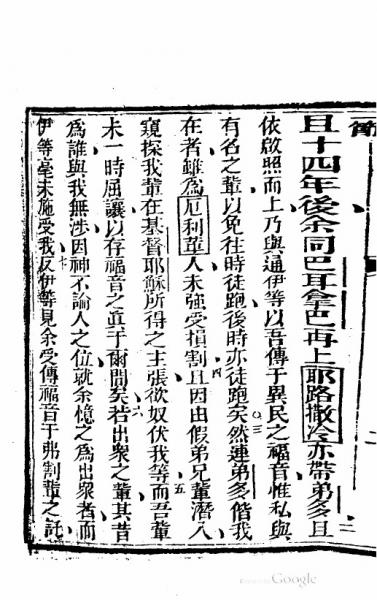 節
且十四年後余同巴耳拿巴再上耶路撒冷亦帶弟多且二
依啟照而上乃與通伊等以吾傳于異民之福音惟私與
有名之輩以免徃時徒跑後時亦徒跑矣然連弟多偕我三
在者雖為厄利革人未強受損割且因由假弟兄輩潛入四
窺探我輩在基督耶穌所得之主張欲奴伏我等而吾輩五
未一時屈讓以存福音之真于爾間矣若出衆之輩其昔六
為誰與我無涉因神不論人之位就余憶之為出衆者而
伊等毫未施受我反伊等見余受傳福音于弗割輩之託七
Google